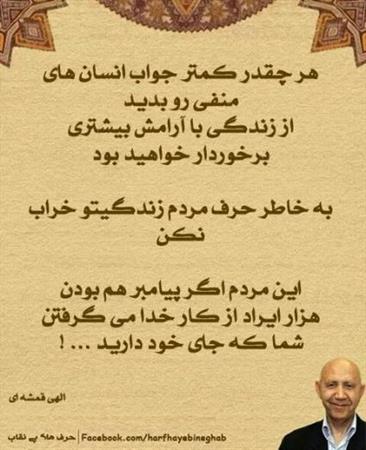 هر چقدر کمتر جواب انسان های
منفی رو بدید
از زندگی با آرامش بیشتری
برخوردار خواهید بود
به خاطر حرف مردم زندگیتو خراب
نکن
این مردم اگر پیامبر هم بودن
هزار ایراد از کار خدا می گرفتن
شما که جای خود دارید ... !
الهی قمشه ای
حرف های بی نقاب | Facebook.com/harfhayebineghab